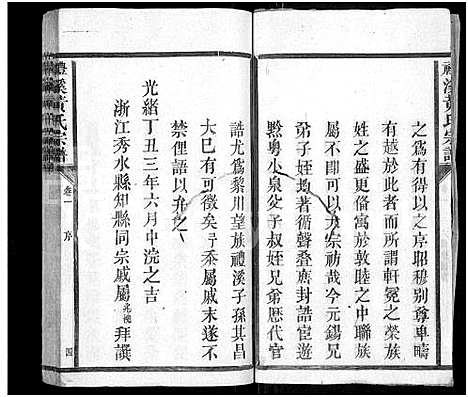 禮溪黃氏宗譜
之爲有得以之序昭穆別尊卑疇
有越於此者而所謂軒冕之榮族
姓之盛更備寓於敦睦之中聯族
屬不可以亢宗祊哉今元錫兄
弟子姪均著循聲疊膺封誥宦遊
黔粵小泉公子叔姪兄弟歷代官
誥尤爲黎川望族禮溪子孫其昌
大巳有可徵矣予忝屬戚末遂不
禁俚語以弁
光緒丁丑三年六月中浣之吉
浙江秀水縣知縣同宗戚屬兆槐拜譔
禮溪黃氏宗譜
卷一
序
四